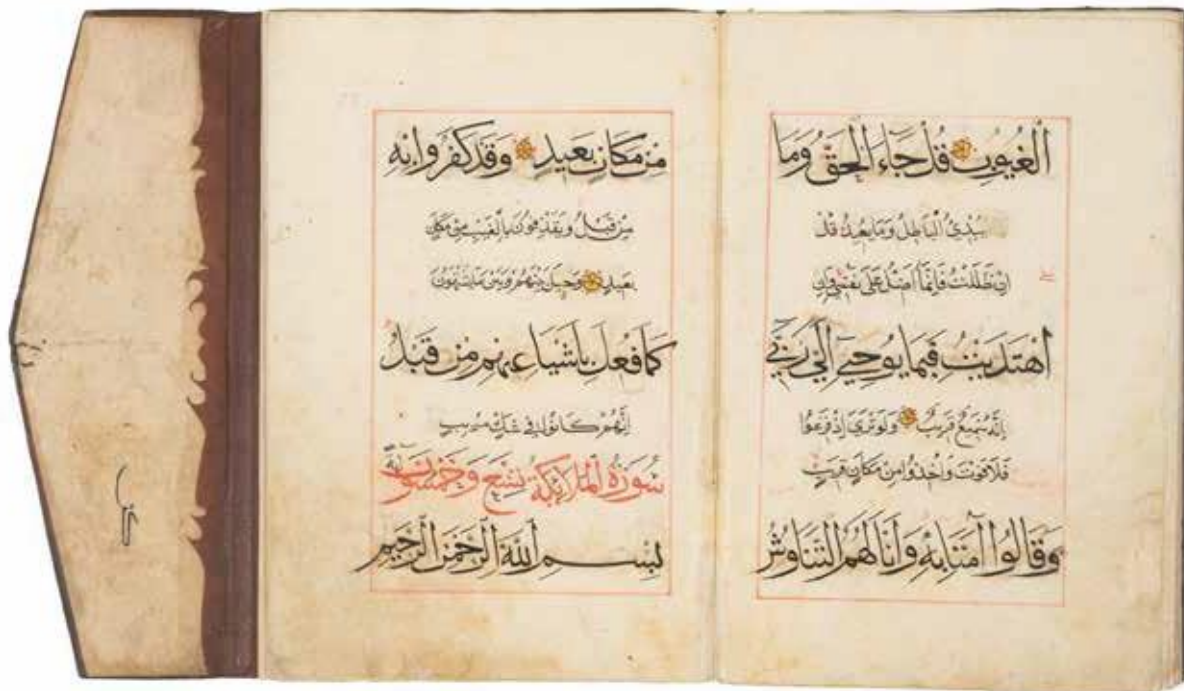 ٱلْغُيُوبِ قُلْ جَاءَ الْحَقُّ وَمَا
يُبْدِئُ الْبَاطِلُ وَمَا يُعِيدُ قُلْ
اِنْ ضَلَلْتُ فَاِنَّمَا اَضِلُّ عَلٰى نَفْسِي وَاِنِ
اهْتَدَيْتُ فَبِمَا يُوحِي اِلَيَّ رَبِّي
اِنَّهُ سَمِيعٌ قَرِيبٌ وَلَوْ تَرَى اِذْ فَزِعُوا
فَلَا فَوْتَ وَاُخِذُوا مِنْ مَكَانٍ قَرِيبٍ
وَقَالُوا اٰمَنَّا بِهِ وَاَنَّا لَهُمُ التَّنَاوُشُ
مِنْ مَكَانٍ بَعِيدٍ وَقَدْ كَفَرُوا بِهِ
مِنْ قَبْلُ وَيَقْذِفُونَ بِالْغَيْبِ مِنْ مَكَانٍ
بَعِيدٍ وَحِيلَ بَيْنَهُمْ وَبَيْنَ مَا يَشْتَهُونَ
كَمَا فُعِلَ بِاَشْيَاعِهِمْ مِنْ قَبْلُ
اِنَّهُمْ كَانُوا فِي شَكٍّ مُرِيبٍ
سُورَةُ الْمَلَائِكَةِ تِسْعٌ وَخَمْسُونَ اٰيَة
بِسْمِ اللّٰهِ الرَّحْمٰنِ الرَّحِيمِ